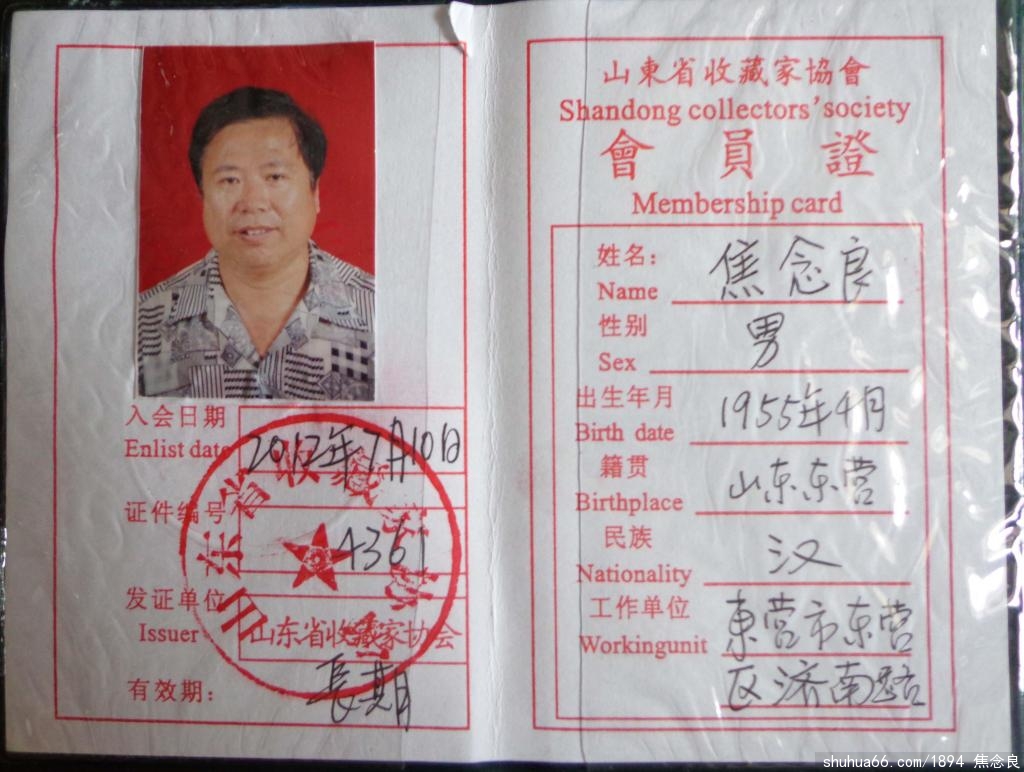 入会日期
Enlist date 2012年7月10日
证件编号 4361
发证单位
Issuer 山东省收藏家协会
有效期： 長期
山东省收藏家协会
山東省收藏家協會
Shandong collectors' society
會員證
Membership card
姓名：
Name 焦念良
性别
Sex 男
出生年月
Birth date 1955年4月
籍贯
Birthplace 山东东营
民族
Nationality 汉
工作单位
Workingunit 東营市東营
区济南路
shuhua66.com/1894 焦念良